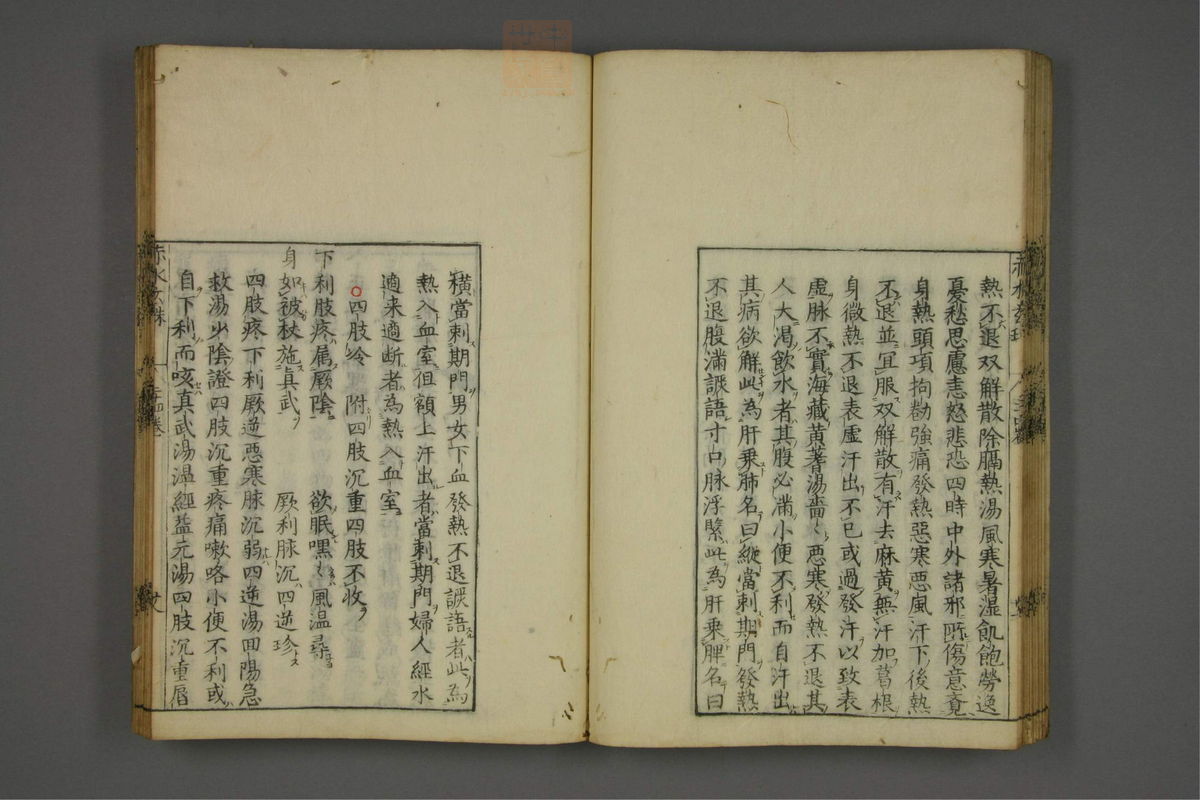 熱不退双解散除膈熱湯風寒暑湿飢飽勞逸
憂愁思慮恚怒悲恐四時中外諸邪所傷意竟
身熱頭項拘勧強痛發熱惡寒悪風汗下後熱
不退並宜服双解散有汗去麻黄無汗加葛根
身微熱不退表虚汗出不已或過發汗以致表
虚脉不實海藏黄蓍湯嗇〻悪寒發熱不退其
人大渇飲水者其腹必滿小便不利而自汗出
其病欲解此為肝乗肺名曰縱當刺期門發熱
不退腹滿譫語寸口脉浮緊此為肝乗脾名曰
横當刺期門男女下血發熱不退譫語者此為
熱入血室但額上汗出者當刺期門婦人經水
適来適断者為熱入血室
四肢冷 附四肢沉重四肢不收
下利肢疼属厥陰 欲眠嘿〻風温尋
身如被杖施真武 厥利脉沉四逆珍
四肢疼下利厥逆惡寒脉沉弱四逆湯回陽急
救湯少陰證四肢沉重疼痛嗽咯小便不利或
自下利而咳真武湯温經益元湯四肢沉重唇
赤水玄珠